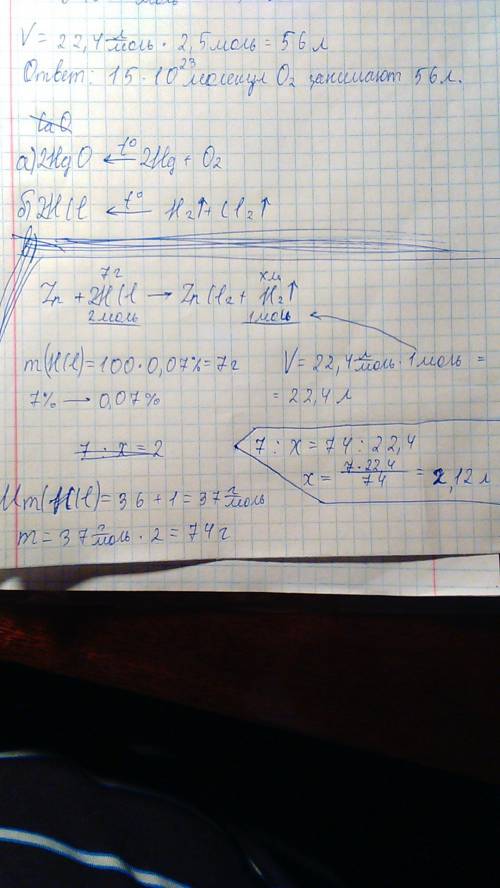 V = 22,4 л/моль · 2,5 моль = 56 л
Ответ: 15 · 10²³ молекул O₂ занимают 56 л.
а) 2HgO ←t° 2Hg + O₂
б) 2HCl ←t° H₂↑ + Cl₂↑
7г хл
Zn + 2HCl → ZnCl₂ + H₂↑
2моль 1моль
m(HCl) = 100 · 0,07% = 7г
7% → 0,07%
V = 22,4 л/моль · 1 моль =
= 22,4 л
7 · x = 2
7 : x = 74 : 22,4
x = 7 · 22,4 / 74 = 2,12 л
Mm(HCl) = 36 + 1 = 37 г/моль
m = 37 г/моль · 2 = 74 г